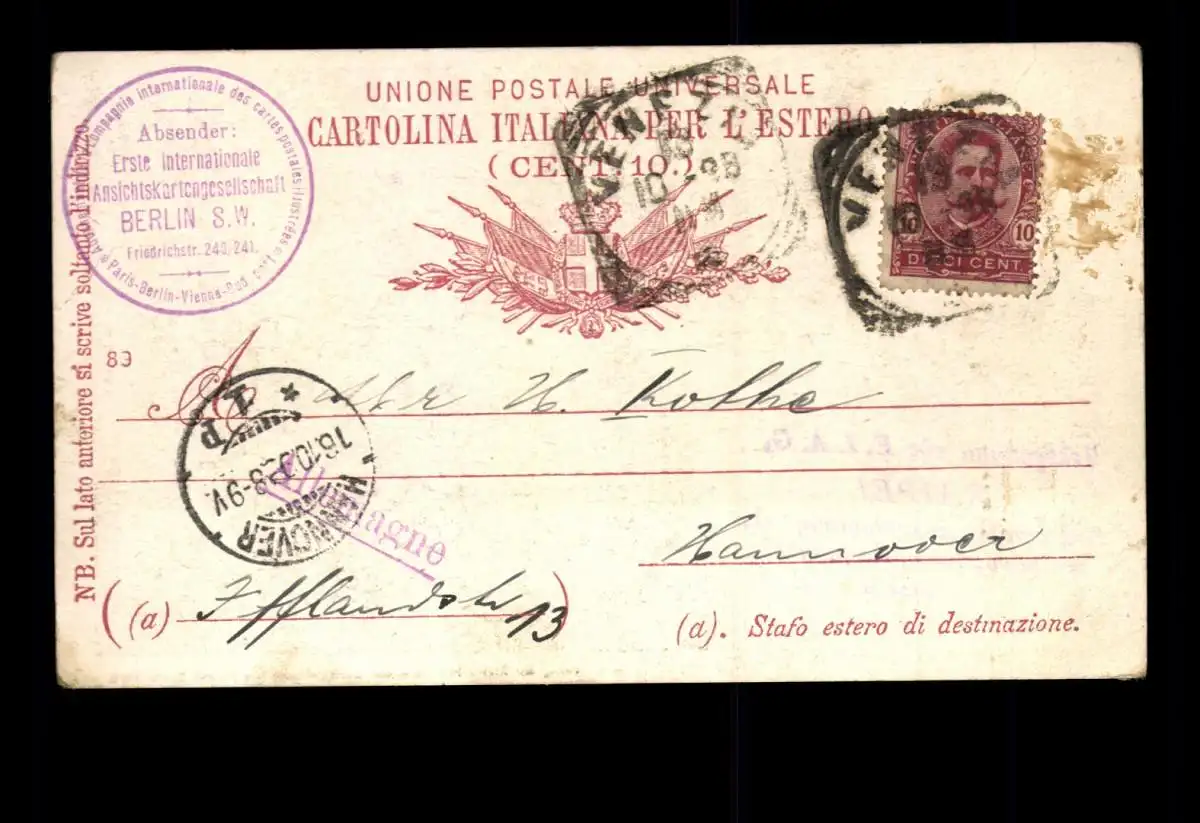 UNIONE POSTALE UNIVERSALE
CARTOLINA ITALIANA PER L'ESTERO
(CENT. 10.)
Compagnie internationale des cartes postales illustrées
Absender:
Erste Internationale
Ansichtskartengesellschaft
BERLIN S.W.
Friedrichstr. 240/241.
Paris-Berlin-Vienna-
VENEZIA
10 98
VE
10 10
DIECI CENT.
NB. Sul lato anteriore si scrive soltanto l'indirizzo
89
A
Herr H. Kothe
HANNOVER
16.10.
8-9V.
1
P
Allemagne
Hannover
(a) Ifflandstr 13
(a). Stato estero di destinazione.
E.I.A.G.